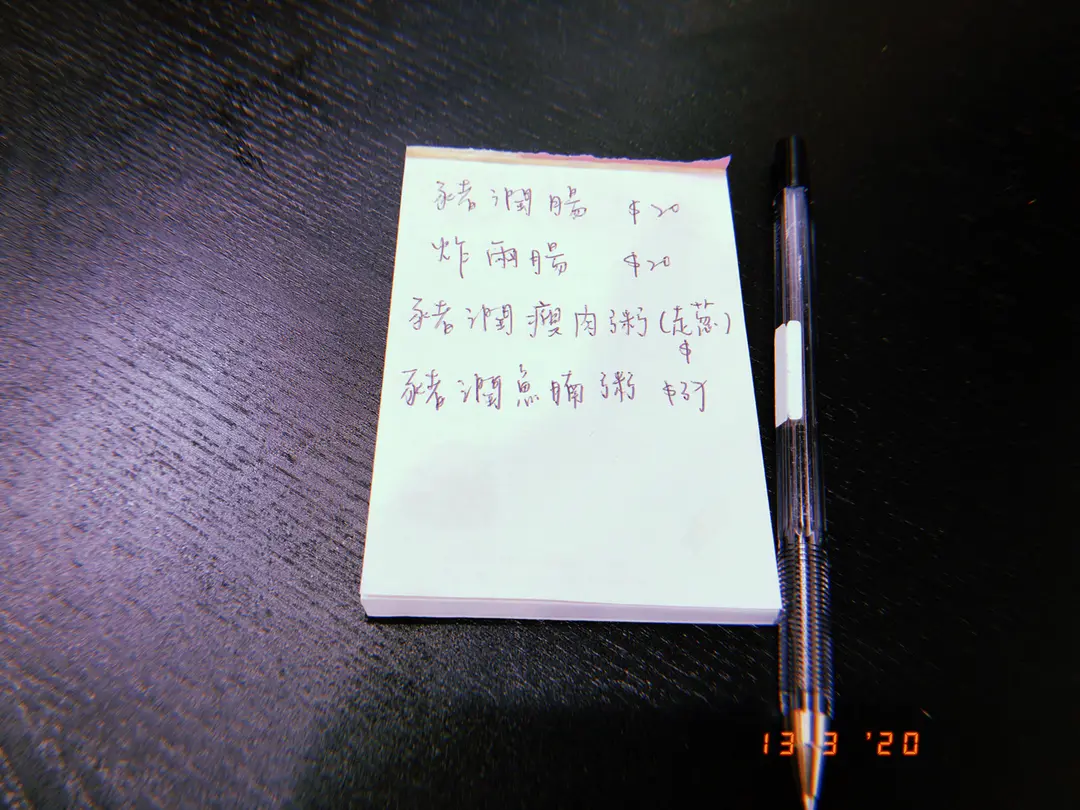 豬潤腸 $20
炸兩腸 $20
豬潤瘦肉粥(走蔥)
$
豬潤魚腩粥
13 3 '20